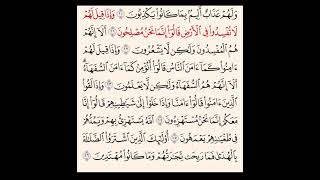 وَلَهُمْ عَذَابٌ أَلِيمٌ بِمَا كَانُوا۟ يَكْذِبُونَ ۝١٠ وَإِذَا قِيلَ لَهُمْ
لَا تُفْسِدُوا۟ فِى ٱلْأَرْضِ قَالُوٓا۟ إِنَّمَا نَحْنُ مُصْلِحُونَ ۝١١ أَلَآ إِنَّهُمْ
هُمُ ٱلْمُفْسِدُونَ وَلَٰكِن لَّا يَشْعُرُونَ ۝١٢ وَإِذَا قِيلَ لَهُمْ
ءَامِنُوا۟ كَمَآ ءَامَنَ ٱلنَّاسُ قَالُوٓا۟ أَنُؤْمِنُ كَمَآ ءَامَنَ ٱلسُّفَهَآءُ ۗ
أَلَآ إِنَّهُمْ هُمُ ٱلسُّفَهَآءُ وَلَٰكِن لَّا يَعْلَمُونَ ۝١٣ وَإِذَا لَقُوا۟
ٱلَّذِينَ ءَامَنُوا۟ قَالُوٓا۟ ءَامَنَّا وَإِذَا خَلَوْا۟ إِلَىٰ شَيَٰطِينِهِمْ قَالُوٓا۟ إِنَّا
مَعَكُمْ إِنَّمَا نَحْنُ مُسْتَهْزِءُونَ ۝١٤ ٱللَّهُ يَسْتَهْزِئُ بِهِمْ وَيَمُدُّهُمْ
فِى طُغْيَٰنِهِمْ يَعْمَهُونَ ۝١٥ أُو۟لَٰٓئِكَ ٱلَّذِينَ ٱشْتَرَوُا۟ ٱلضَّلَٰلَةَ
بِٱلْهُدَىٰ فَمَا رَبِحَت تِّجَٰرَتُهُمْ وَمَا كَانُوا۟ مُهْتَدِينَ ۝١٦